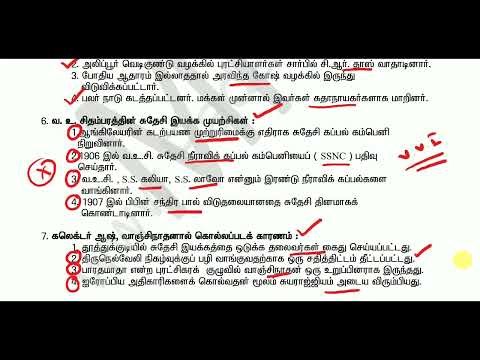 2. அலிப்பூர் வெடிகுண்டு வழக்கில் புரட்சியாளர்கள் சார்பில் சி.ஆர். தாஸ் வாதாடினார்.
3. போதிய ஆதாரம் இல்லாததால் அரவிந்த கோஷ் வழக்கில் இருந்து
விடுவிக்கப்பட்டார்.
4. பலர் நாடு கடத்தப்பட்டனர். மக்கள் முன்னால் இவர்கள் கதாநாயகர்களாக மாறினர்.
6. வ. உ. சிதம்பரத்தின் சுதேசி இயக்க முயற்சிகள் :
1. ஆங்கிலேயரின் கடற்பயண முற்றுரிமைக்கு எதிராக சுதேசி கப்பல் கம்பெனி
நிறுவினார்.
2. 1906 இல் வ.உ.சி. சுதேசி நீராவிக் கப்பல் கம்பெனியைப் ( SSNC ) பதிவு
செய்தார்.
3. வ.உ.சி., S.S. கலியா, S.S. லாவோ என்னும் இரண்டு நீராவிக் கப்பல்களை
வாங்கினார்.
4. 1907 இல் பிபின் சந்திர பால் விடுதலையானதை சுதேசி தினமாகக்
கொண்டாடினார்.
VVI
7. கலெக்டர் ஆஷ், வாஞ்சிநாதனால் கொல்லப்படக் காரணம் :
1. தூத்துக்குடியில் சுதேசி இயக்கத்தை ஒடுக்க தலைவர்கள் கைது செய்யப்பட்டது.
2. திருநெல்வேலி நிகழ்வுக்குப் பழி வாங்குவதற்காக ஒரு சதித்திட்டம் தீட்டப்பட்டது.
3. பாரதமாதா என்ற புரட்சிகரக் குழுவில் வாஞ்சிநாதன் ஒரு உறுப்பினராக இருந்தது.
4. ஐரோப்பிய அதிகாரிகளைக் கொல்வதன் மூலம் சுயராஜ்ஜியம் அடைய விரும்பியது.